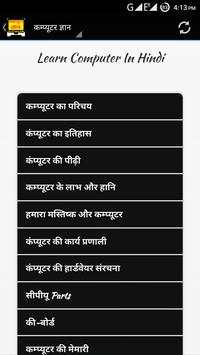 G E 4:13 PM
कम्प्यूटर ज्ञान
Learn Computer In Hindi
कम्प्यूटर का परिचय
कंप्यूटर का इतिहास
कंप्यूटर की पीढ़ी
कम्प्यूटर के लाभ और हानि
हमारा मस्तिष्क और कम्प्यूटर
कंप्यूटर की कार्य प्रणाली
कंप्यूटर की हार्डवेयर संरचना
सीपीयू Parts
की-बोर्ड
कम्प्यूटर की मेमारी